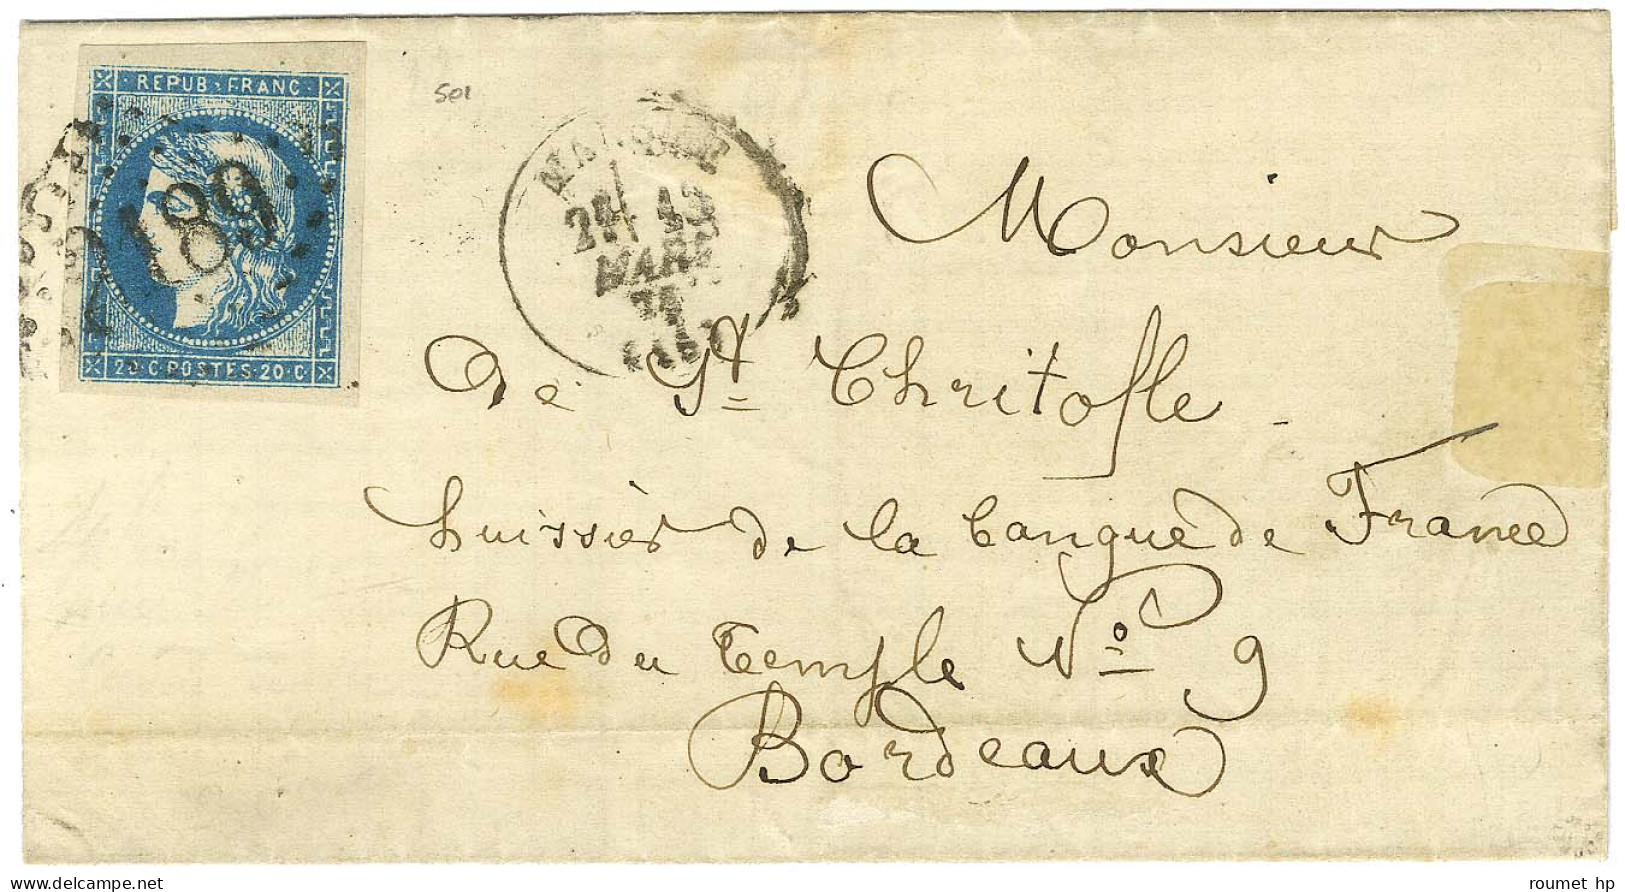 REPUB·FRANC
2189
20·C·POSTES·20·C
501
13
MARS
Monsieur
de St Chritofle
huissier de la banque de France
Rue du Temple No 9
Bordeaux
roumet hp